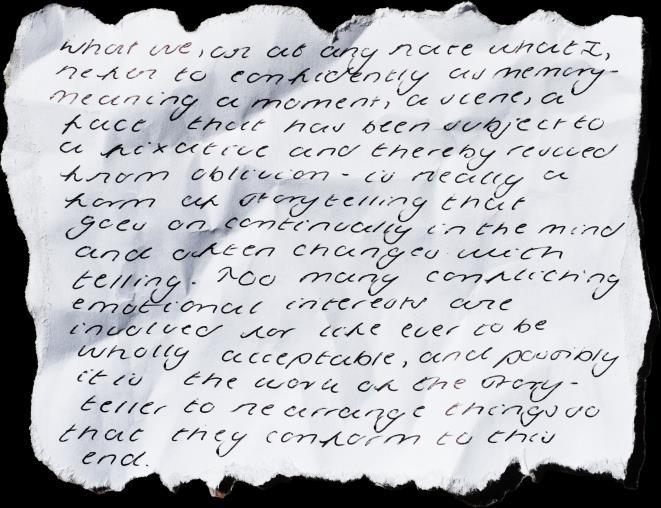 what we, or at any rate what I,
refer to confidently as memory-
meaning a moment, a scene, a
fact that has been subject to
a fixative and thereby rescued
from oblivion - is really a
form of storytelling that
goes on continually in the mind
and often changes with
telling. Too many conflicting
emotional interests are
involved for life ever to be
wholly acceptable, and possibly
it is the work of the story-
teller to rearrange things so
that they conform to this
end.